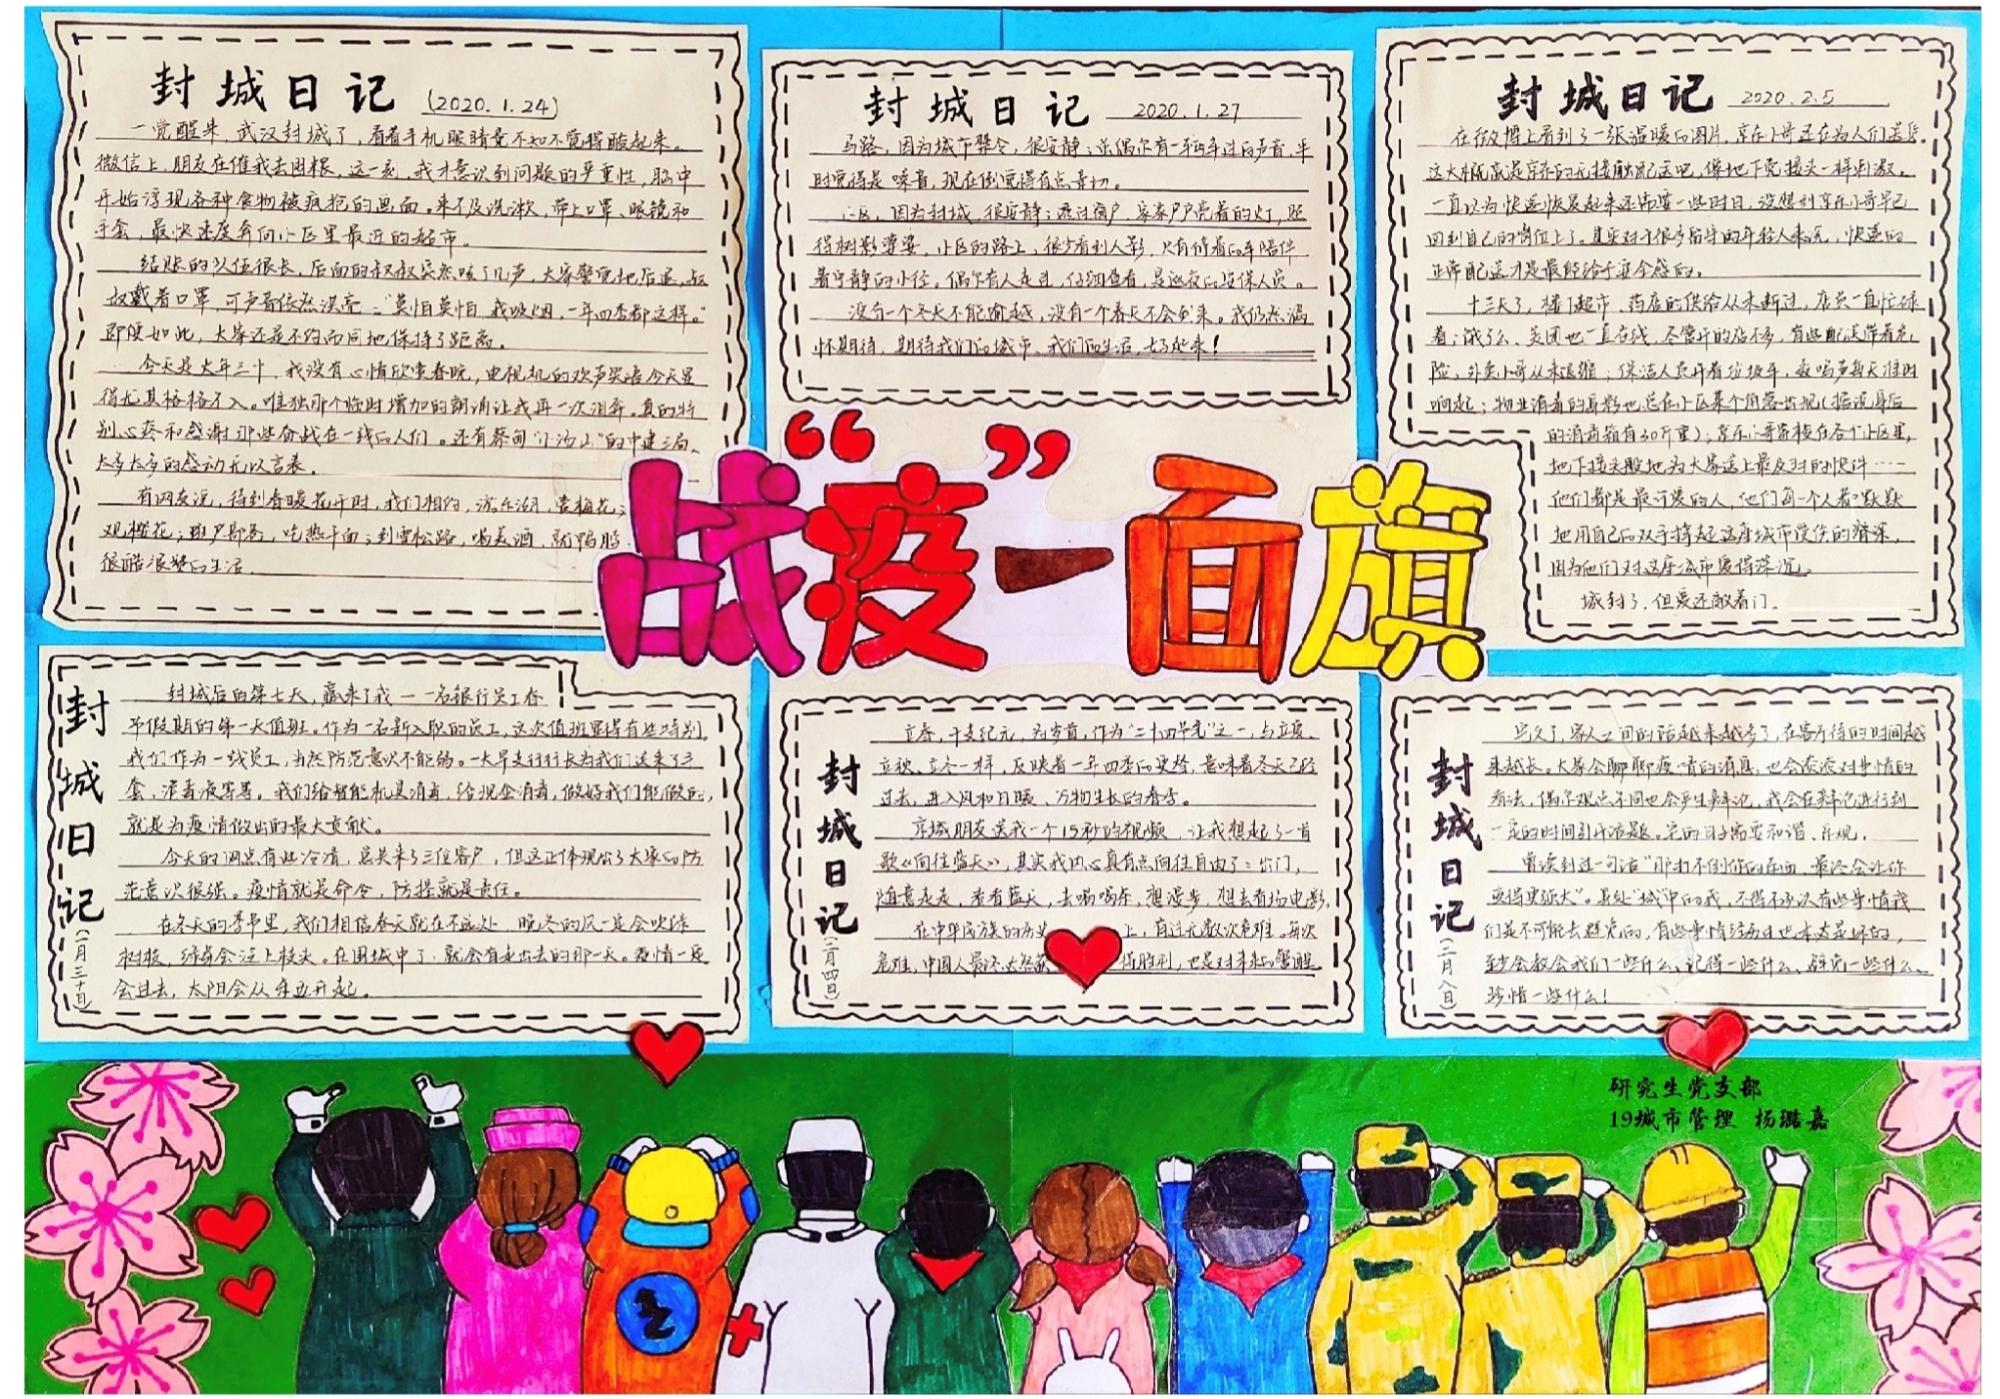 封城日记 (2020.1.24)
一觉醒来，武汉封城了，看着手机眼睛竟不知不觉得酸起来。
微信上，朋友在催我去囤粮，这一刻，我才意识到问题的严重性，脑中
开始浮现各种食物被疯抢的画面。来不及洗漱，带上口罩、眼镜和
手套，最快速度奔向小区里最近的超市。
结账的队伍很长，后面的叔叔突然咳了几声，大家警觉地后退，叔
叔戴着口罩，可声音依然洪亮：“莫怕莫怕，我吸烟，一年四季都这样。”
即便如此，大家还是不约而同地保持了距离。
今天是大年三十，我没有心情欣赏春晚，电视机的欢声笑语今天显
得尤其格格不入。唯独那个临时增加的朗诵让我再一次泪奔。真的特
别心疼和感谢那些奋战在一线的人们。还有蔡甸“小汤山”的中建三局、
太多太多的感动无以言表。
有网友说，待到春暖花开时，我们相约，游东湖，赏梅花；
观樱花；到户部巷，吃热干面；到雪松路，喝美酒，就鸭脖
很酷很赞的生活。
封城日记 2020.1.27
马路，因为城市禁令，很安静；乐偶尔有一两车过的声音，平
时觉得是噪音，现在倒觉得有点亲切。
小区，因为封城，很安静；透过窗户，家家户户亮着的灯，照
得树影婆娑，小区的路上，很少看到人影，只有停着的车陪伴
着宁静的小径。偶尔有人走过，仔细查看，是巡夜的安保人员。
没有一个冬天不能逾越，没有一个春天不会到来。我仍然满
怀期待，期待我们的城市、我们的生活，好起来！
封城日记 2020.2.5
在微博上看到了一张温暖的图片，京东小哥还在为人们送货。
这大概就是京东的无接触配送吧，像地下党接头一样刺激。
一直以为快递恢复起来还需要一些时日，没想到京东小哥早已
回到自己的岗位上了。其实对于很多留守的年轻人来说，快递的
正常配送才是最能给予安全感的。
十三天了，楼下超市、药店的供给从未断过，店员一直忙碌
着；饿了么、美团也一直在线，尽管开的店不多，有些配送带着危
险，外卖小哥从未退缩；保洁人员开着垃圾车，轰鸣声每天准时
响起；物业消毒的身影也总在小区某个角落出现(据说肩后
的消毒箱有30斤重)；京东小哥穿梭在各个小区里，
地下接头般地为大家送上最及时的快件……
他们都是最可爱的人，他们每一个人都默默
地用自己的双手撑起这座城市受伤的脊梁，
因为他们对这座城市爱得深沉。
城封了，但爱还敞着门。
战“疫”一面旗
封城日记 (一月三十日)
封城后的第七天，赢来了我——一名银行员工春
节假期的第一天值班。作为一名新入职的员工，这次值班显得有些特别，
我们作为一线员工，当然防范意识不能弱。一大早支行行长为我们送来了手
套，消毒液等等。我们给智能机具消毒，给现金消毒，做好我们能做的，
就是为疫情做出的最大贡献。
今天的网点有些冷清，总共来了三位客户，但这正体现出了大家的防
范意识很强。疫情就是命令，防控就是责任。
在冬天的季节里，我们相信春天就在不远处，晚冬的风一定会吹绿
树枝，绿芽会泛上枝头。在围城中了，就会有走出去的那一天。疫情一定
会过去，太阳会从东边升起。
封城日记 (二月四日)
立春，干支纪元，为岁首，作为“二十四节气”之一，与立夏、
立秋、立冬一样，反映着一年四季的更替，意味着冬天已经
过去，进入风和日暖、万物生长的春季。
京城朋友送我一个15秒的视频，让我想起了一首
歌《向往蓝天》，其实我内心真有点向往自由了：出门，
随意走走，看看蓝天，去喝喝东，想漫步，想去看场电影。
在中华民族的历史上，有过无数次危难。每次
危难，中国人最终大然获得胜利，也是对未来的警醒
封城日记 (二月八日)
宅久了，家人之间的话越来越多了，在客厅待的时间越
来越长。大家会聊聊疫情的消息，也会谈谈对事情的
看法，偶尔观点不同也会产生辩论，我会在辩论进行到
一定的时间引开话题。宅的日子需要和谐、乐观。
曾读到过一句话“那打不倒你的东西，最终会让你
变得更强大”。身处“城”中的我，不得不承认有些事情我
们是不可能去避免的，有些事情经历过也未必是坏的，
至少会教会我们一些什么、记得一些什么、研究一些什么、
珍惜一些什么！
研究生党支部
19城市管理 杨璐嘉